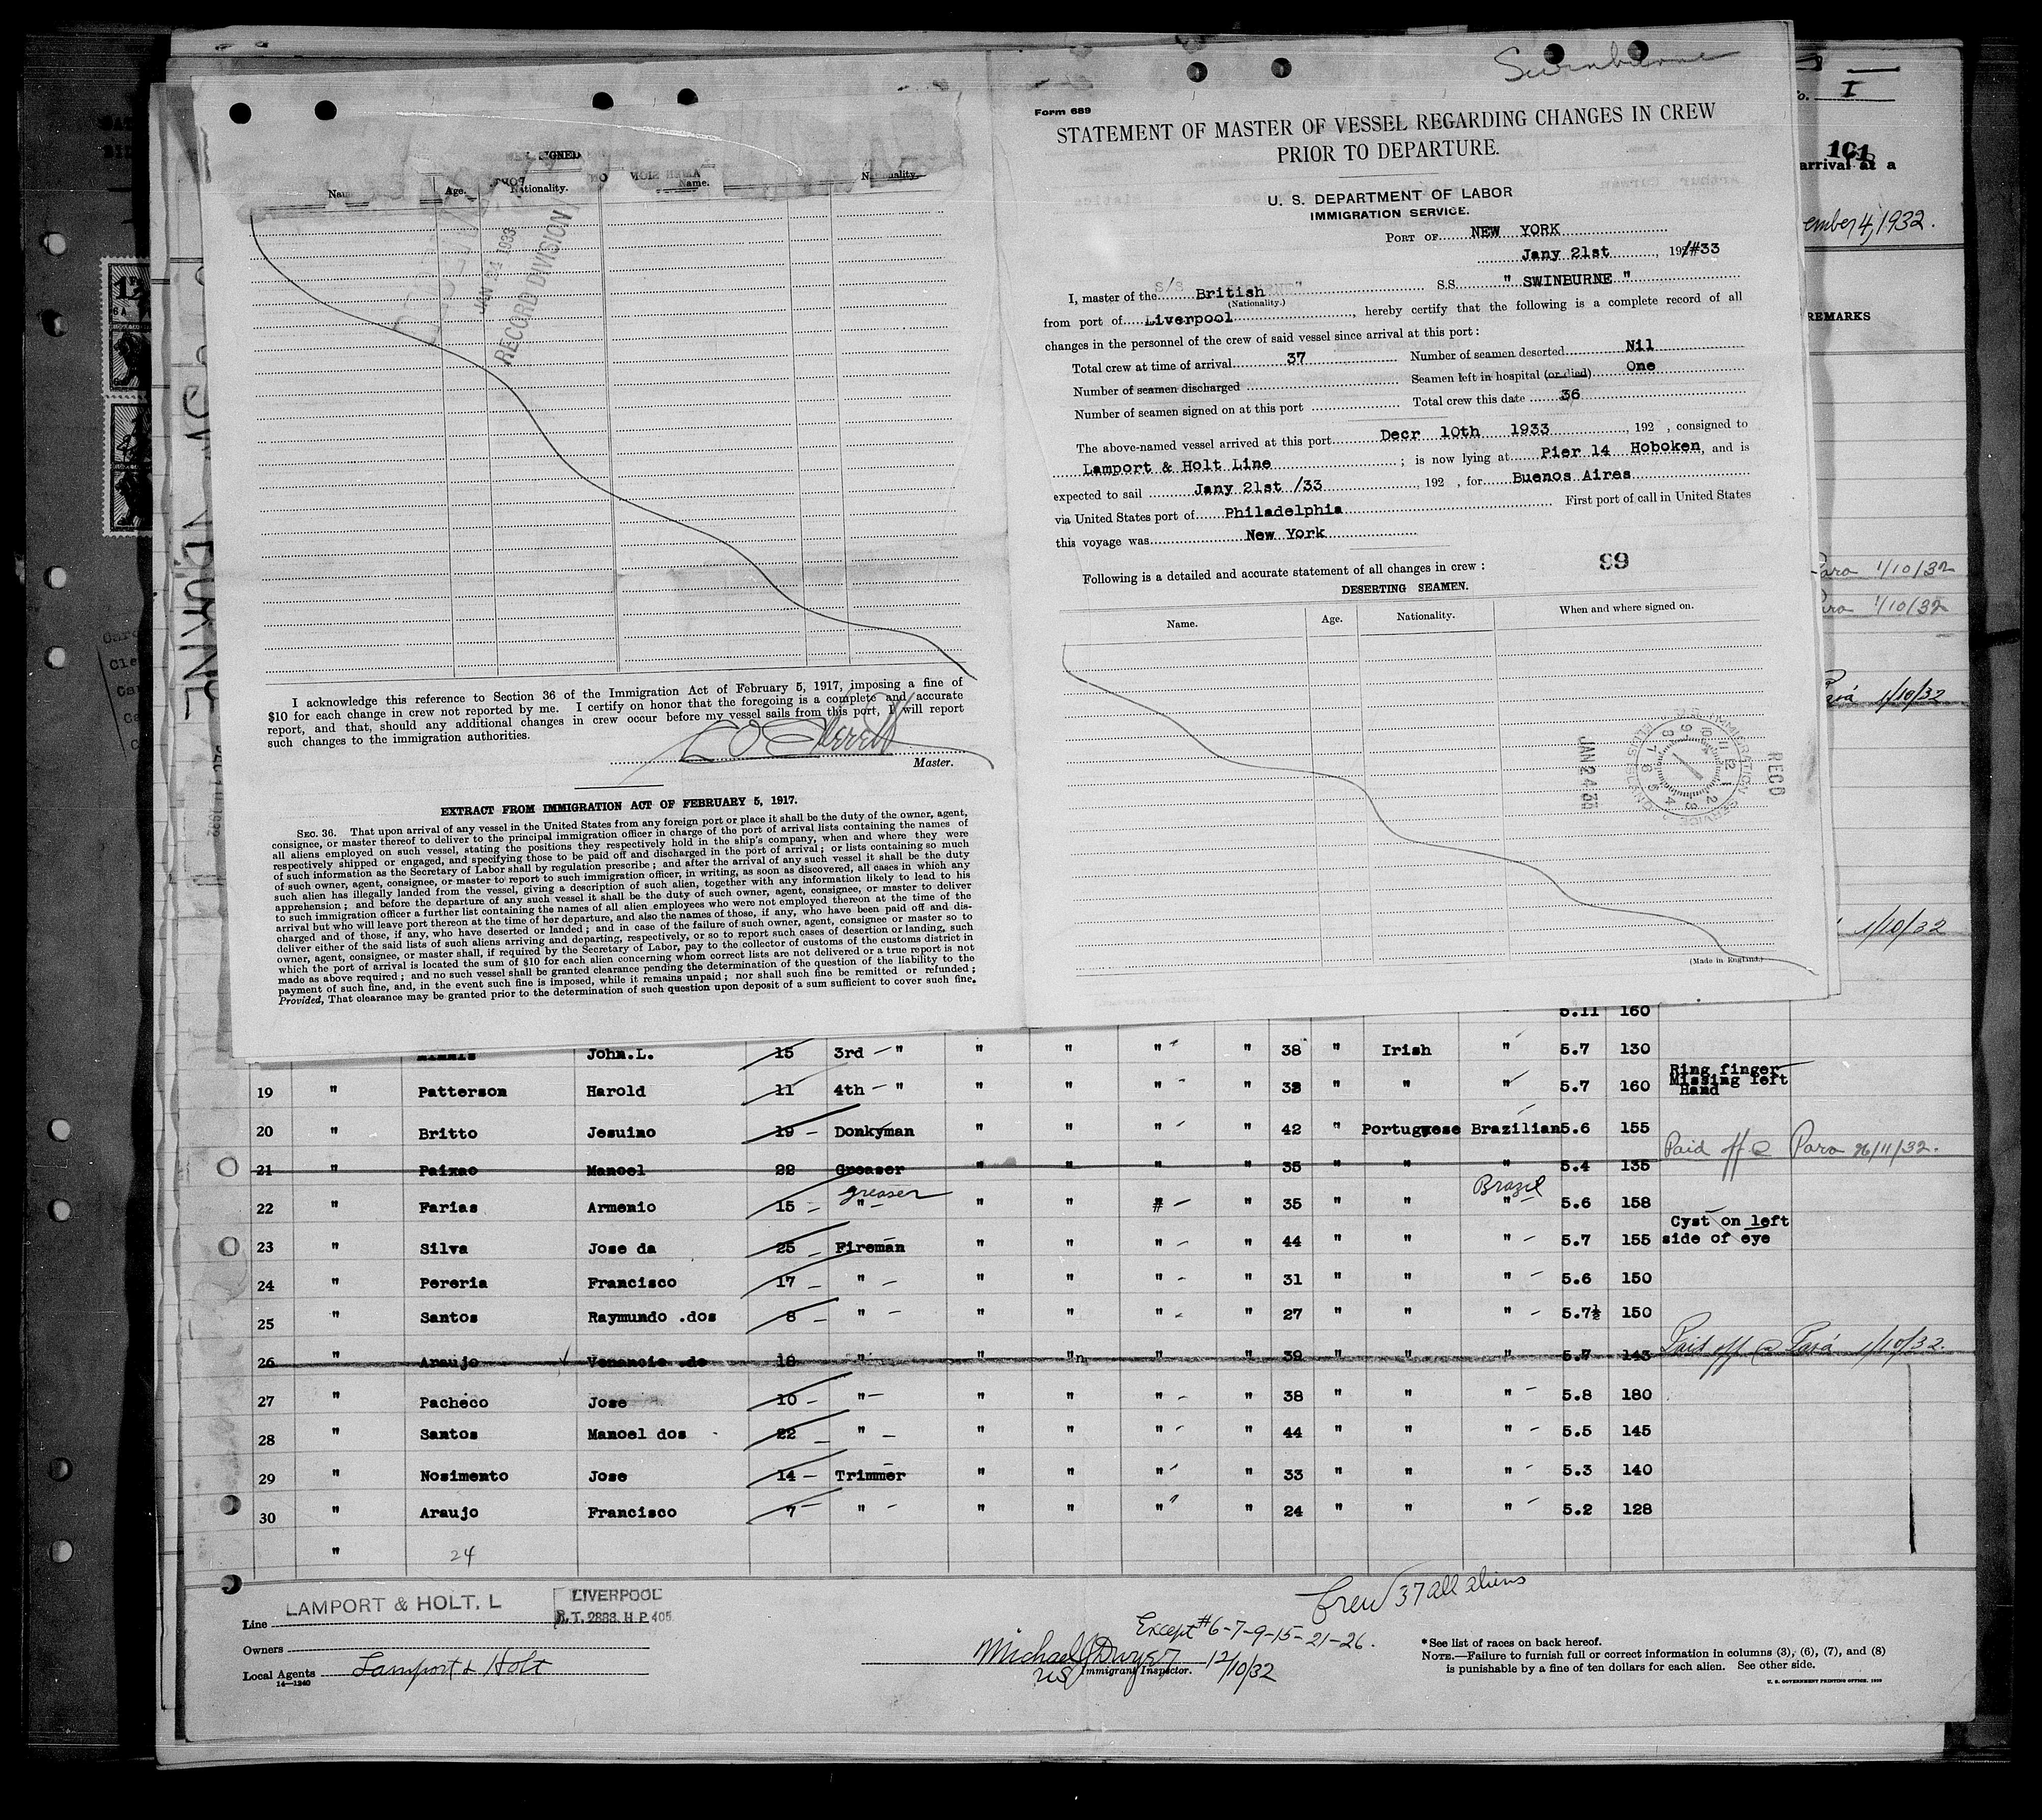 Swinburne
Form 689
STATEMENT OF MASTER OF VESSEL REGARDING CHANGES IN CREW
PRIOR TO DEPARTURE.
U. S. DEPARTMENT OF LABOR
IMMIGRATION SERVICE.
PORT OF NEW YORK
Jany 21st, 192/#33
I, master of the British SS. " SWINBURNE "
(Nationality.)
from port of Liverpool, hereby certify that the following is a complete record of all
changes in the personnel of the crew of said vessel since arrival at this port :
Total crew at time of arrival 37 Number of seamen deserted Nil
Number of seamen discharged Seamen left in hospital (or died) One
Number of seamen signed on at this port Total crew this date 36
The above-named vessel arrived at this port Decr 10th 1933, 192 , consigned to
Lamport & Holt Line ; is now lying at Pier 14 Hoboken, and is
expected to sail Jany 21st /33, 192 , for Buenos Aires
via United States port of Philadelphia First port of call in United States
this voyage was New York
99
Following is a detailed and accurate statement of all changes in crew :
DESERTING SEAMEN.
Name. Age. Nationality. When and where signed on.
REC'D
JAN 24 33
(Made in England.)
SIGNED
Name. Age. Nationality. Name. Nationality.
JAN 24 1933
RECORD DIVISION
I acknowledge this reference to Section 36 of the Immigration Act of February 5, 1917, imposing a fine of
$10 for each change in crew not reported by me. I certify on honor that the foregoing is a complete and accurate
report, and that, should any additional changes in crew occur before my vessel sails from this port, I will report
such changes to the immigration authorities.
Master.
EXTRACT FROM IMMIGRATION ACT OF FEBRUARY 5, 1917.
SEC. 36. That upon arrival of any vessel in the United States from any foreign port or place it shall be the duty of the owner, agent,
consignee, or master thereof to deliver to the principal immigration officer in charge of the port of arrival lists containing the names of
all aliens employed on such vessel, stating the positions they respectively hold in the ship's company, when and where they were
respectively shipped or engaged, and specifying those to be paid off and discharged in the port of arrival ; or lists containing so much
of such information as the Secretary of Labor shall by regulation prescribe ; and after the arrival of any such vessel it shall be the duty
of such owner, agent, consignee, or master to report to such immigration officer, in writing, as soon as discovered, all cases in which any
such alien has illegally landed from the vessel, giving a description of such alien, together with any information likely to lead to his
apprehension ; and before the departure of any such vessel it shall be the duty of such owner, agent, consignee, or master to deliver
to such immigration officer a further list containing the names of all alien employees who were not employed thereon at the time of the
arrival but who will leave port thereon at the time of her departure, and also the names of those, if any, who have been paid off and dis-
charged and of those, if any, who have deserted or landed ; and in case of the failure of such owner, agent, consignee or master so to
deliver either of the said lists of such aliens arriving and departing, respectively, or so to report such cases of desertion or landing, such
owner, agent, consignee, or master shall, if required by the Secretary of Labor, pay to the collector of customs of the customs district in
which the port of arrival is located the sum of $10 for each alien concerning whom correct lists are not delivered or a true report is not
made as above required ; and no such vessel shall be granted clearance pending the determination of the question of the liability to the
payment of such fine, and, in the event such fine is imposed, while it remains unpaid ; nor shall such fine be remitted or refunded ;
Provided, That clearance may be granted prior to the determination of such question upon deposit of a sum sufficient to cover such fine.
I
101
arrival at a
ember 4, 1932.
REMARKS
Para 1/10/32
Para 1/10/32
Pará 1/10/32
1/10/32
5.11 160
John.L. 15 3rd " " " " " 38 " Irish " 5.7 130
19 " Patterson Harold 11 4th " " " " " 38 " " " 5.7 160 Ring finger Missing left Hand
20 " Britto Jesuino 19 Donkyman " " " " 42 " Portuguese Brazilian 5.6 155
21 " Paixao Manoel 22 Greaser " " " " 35 " " " 5.4 135 Paid off @ Para 26/11/32.
22 " Farias Armenio 15 " greaser " " # " 35 " " " Brazil 5.6 158
23 " Silva Jose da 25 Fireman " " " " 44 " " " 5.7 155 Cyst on left side of eye
24 " Pereria Francisco 17 " " " " " 31 " " " 5.6 150
25 " Santos Raymundo .dos 8 " " " " " 27 " " " 5.7½ 150
26 " Araujo Venancio de 18 " " " " " 39 " " " 5.7 143 Paid off @ Pará 1/10/32.
27 " Pacheco Jose 10 " " " " " 38 " " " 5.8 180
28 " Santos Manoel dos 22 " " " " " 44 " " " 5.5 145
29 " Nosimento Jose 14 Trimmer " " " " 33 " " " 5.3 140
30 " Araujo Francisco 7 " " " " " 24 " " " 5.2 128
" 24
Crew 37 all aliens
Except #6-7-9-15-21-26.
Line LAMPORT & HOLT. L
LIVERPOOL
R.T. 2883. H.P. 405.
Owners
Local Agents Lamport & Holt
14—1240
Michael J Dwyer 12/10/32
US Immigrant Inspector.
*See list of races on back hereof.
NOTE.—Failure to furnish full or correct information in columns (3), (6), (7), and (8)
is punishable by a fine of ten dollars for each alien. See other side.
U. S. GOVERNMENT PRINTING OFFICE. 1932